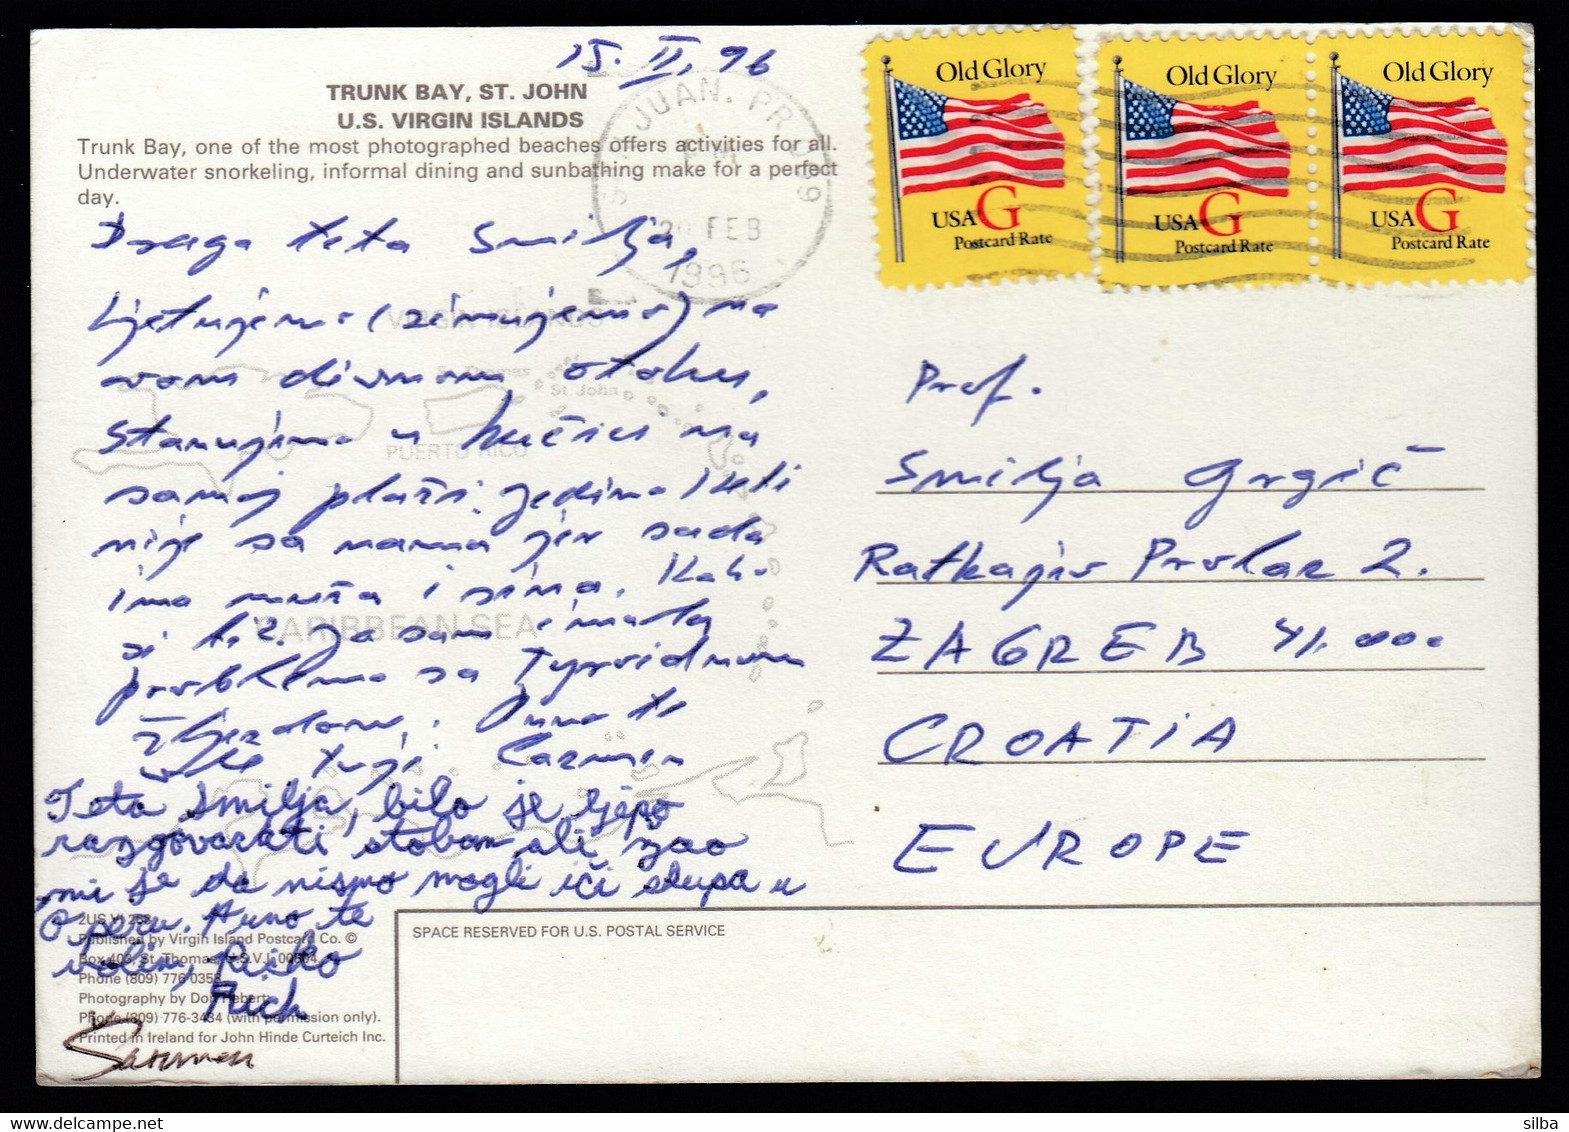 15. II. 96
TRUNK BAY, ST. JOHN
U.S. VIRGIN ISLANDS
Trunk Bay, one of the most photographed beaches offers activities for all.
Underwater snorkeling, informal dining and sunbathing make for a perfect
day.
JUAN. PR 009
PM
20 FEB
1996
Old Glory
USA G
Postcard Rate
Old Glory
USA G
Postcard Rate
Old Glory
USA G
Postcard Rate
Draga teta Smilja,
Ljetujemo (zimujemo) na
ovom divnom otoku,
stanujemo u kućici na
samoj plaži. Jedino Keti
nije sa nama jer sada
ima muža i sina. Kako
si ti? Ja sam imala
problema sa
žlijezdom. Puno te
voli tvoja Carmen
Teta Smilja, bilo je lijepo
razgovarati stobom ali žao
mi je da nismo mogli ići skupa u
operu. Puno te
volim, Ričko
Rich
VIRGIN ISLANDS
St. Thomas
St John
PUERTO RICO
CARIBBEAN SEA
Prof.
Smilja Grgić
Ratkajev Prolaz 2.
ZAGREB 41.000
CROATIA
EUROPE
2US VI 268
Published by Virgin Island Postcard Co. ©
Box 403, St. Thomas, U.S.V.I. 00804
Phone (809) 776-0358
Photography by Don Hebert
Phone (809) 776-3434 (with permission only).
Printed in Ireland for John Hinde Curteich Inc.
SPACE RESERVED FOR U.S. POSTAL SERVICE
silba